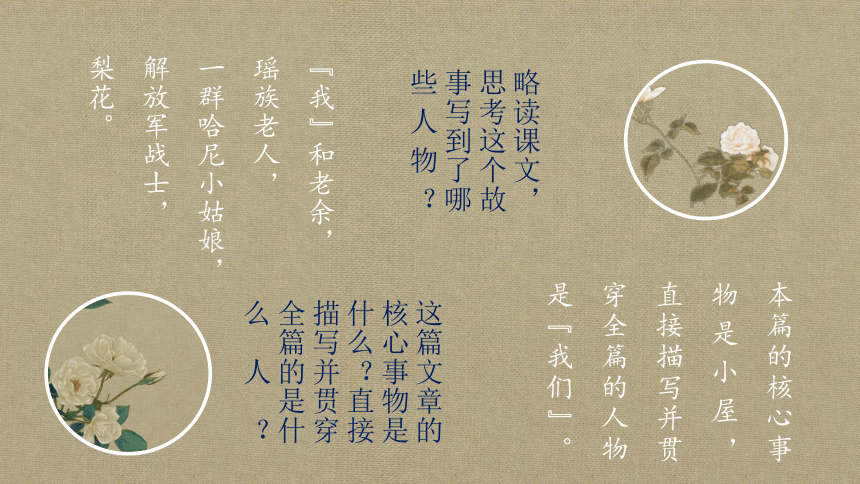 略读课文，
思考这个故
事写到了哪
些人物？
『我』和老余，
瑶族老人，
一群哈尼小姑娘，
解放军战士，
梨花。
这篇文章的
核心事物是
什么？直接
描写并贯穿
全篇的是什
么人？
本篇的核心事
物是小屋，
直接描写并贯
穿全篇的人物
是『我们』。